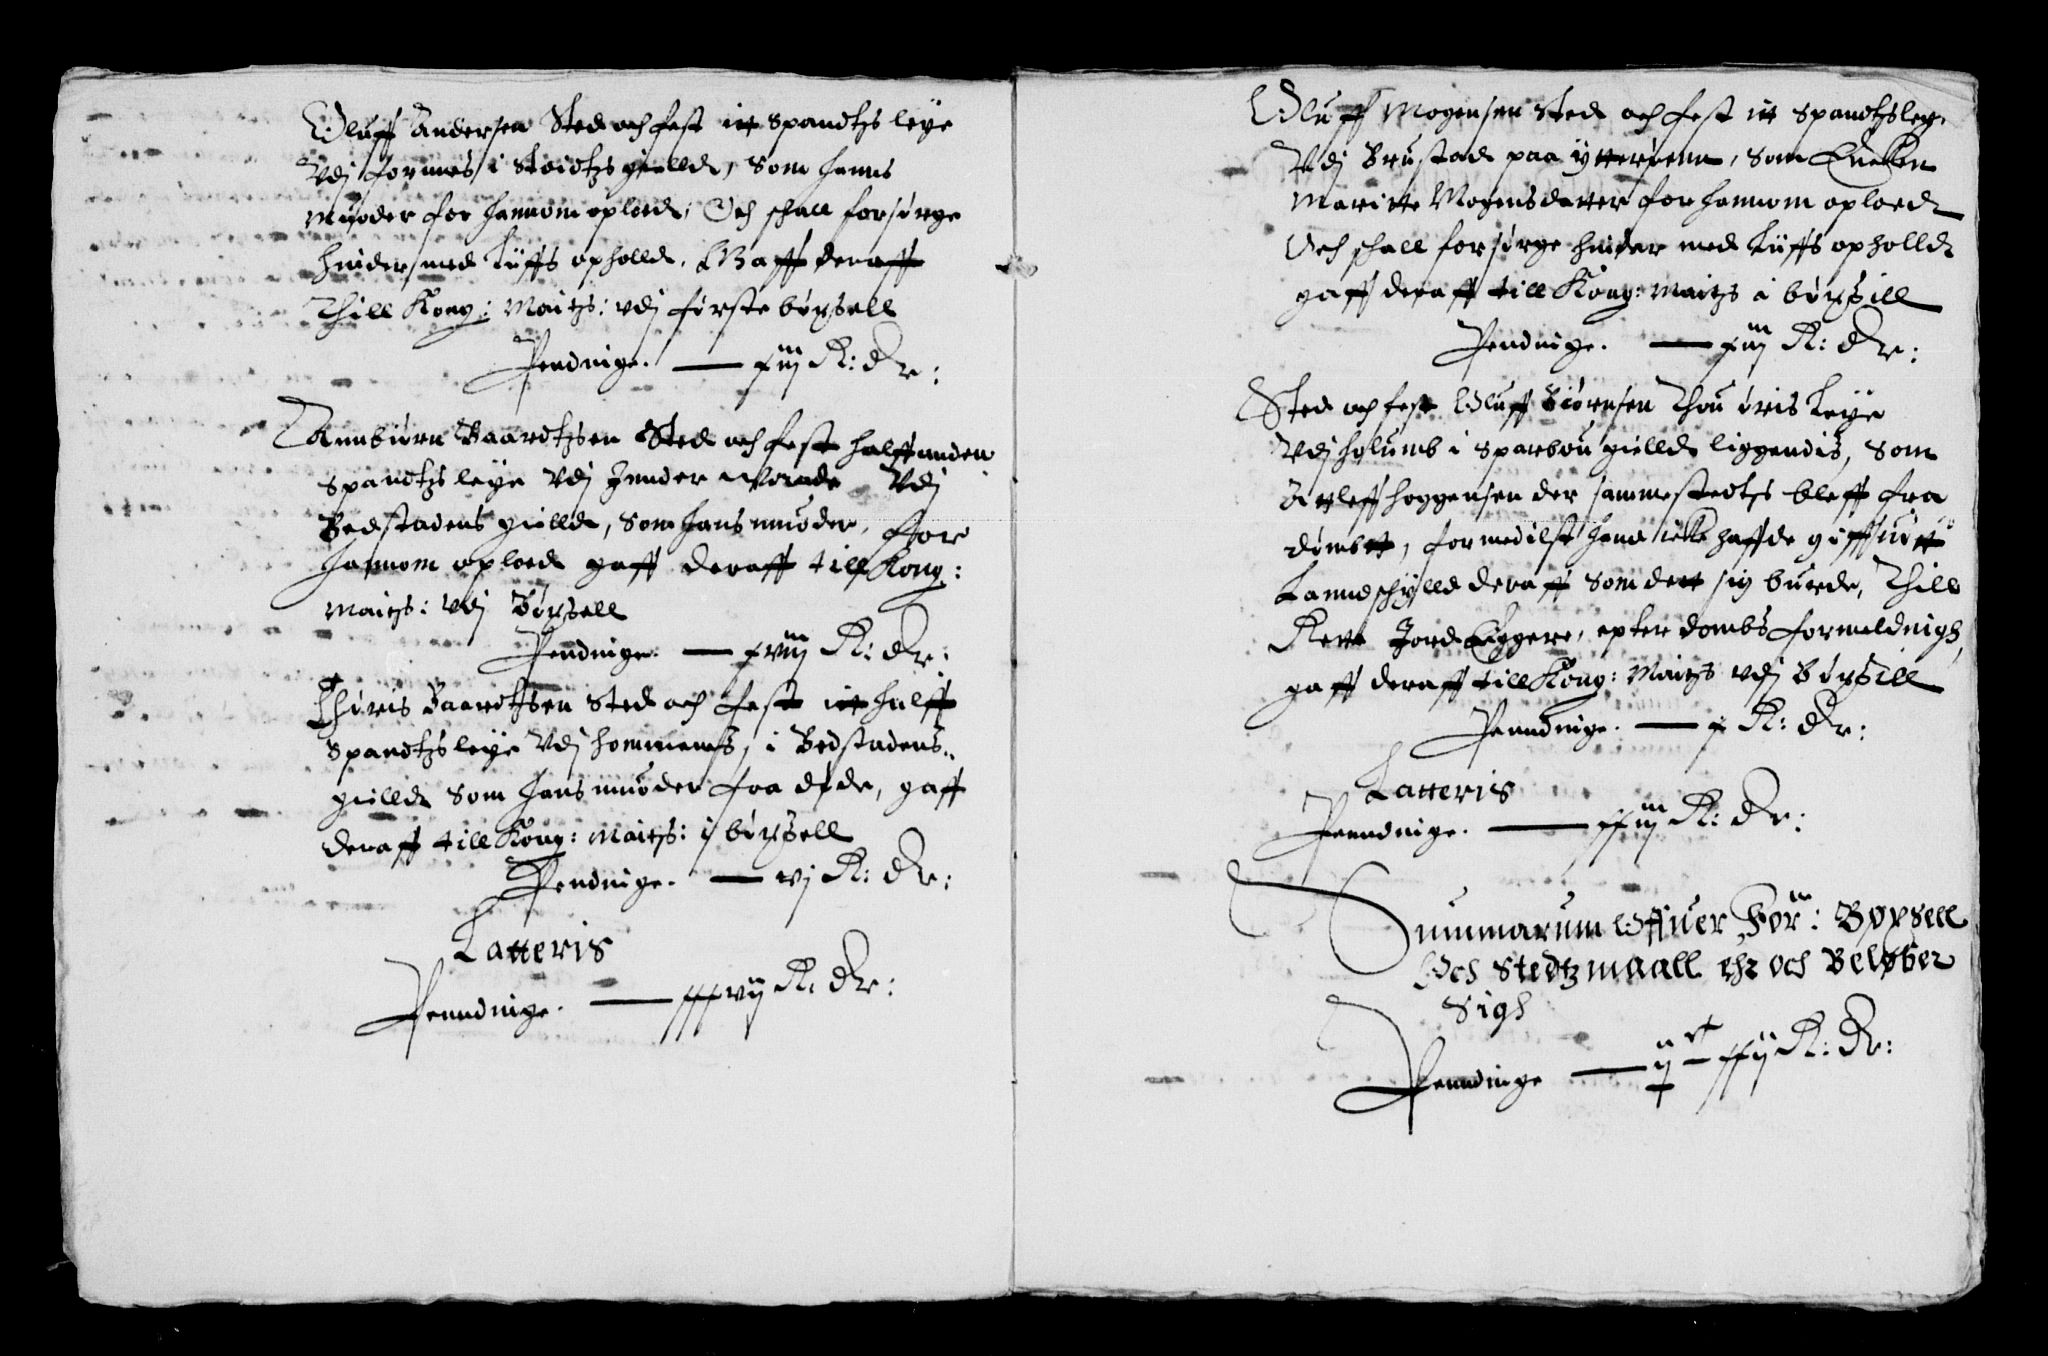 Oluff Andersen Sted och fest itt Spandtzs leye
Vdj formes i Støedtzs gielld, Som hanns
Muoder for hannom oploed, Och schall forsørge
hinder med Liiffs opholld, Gaff deraff
Thill Kong: Maitzs: vdj første bøxsell
Pendninge. — xiiij R: Dr:
Annbiørn Baardtzsen Sted och fest halffanden
Spandtzs leye Vdj Vdj
Bedstadens gielld, Som hans muoder, for
hannom oploed gaff deraff till Kong:
Maitzs: vdj Bøxsell
Pendninge. — xviij R: Dr:
Thøris Baardtzsen Sted och fest itt halff
Spandtzs leye Vdj hommemss, i Bedstadens
gielld Som hans muoder fra døde, gaff
deraff till Kong: Maitzs: i bøxsell
Pendninge. — vj R: Dr:
Latteris
Penndninge. — xxxvij R: Dr:
Oluff Mogensen Sted och fest itt Spandtzsleye
Vdj Brustad paa ytterøenn, Som Encken
Maritte Mogensdatter for hannom oploed
Och schall forsørge hinder med Liiffs opholld
gaff deraff till Kong: Maitzs i bøxsill
Pendninge. — xiij R: Dr:
Sted och fest Oluff Biørnsen Thou øris Leye
Vdj holumb i Sparbou gielld liggendis, Som
Attleff hoggensen der sammestedtzs bleff fra
dømbtt, formedilst hand icke haffde giffuitt
Lanndschylld deraff Som dett sig burde, Thill
Rette Jord Eyggere, epter dombs formeldnigh,
gaff deraff till Kong: Maitzs vdj Bøxsill
Penndninge. — x R: Dr:
Latteris
Penndninge. — xxiij R: Dr:
Summarum Offuer For: Bøxsell
Och Stedtzmaall ehr och Beløber
Sigh
Penndinge — ij c xxij R: Dr: